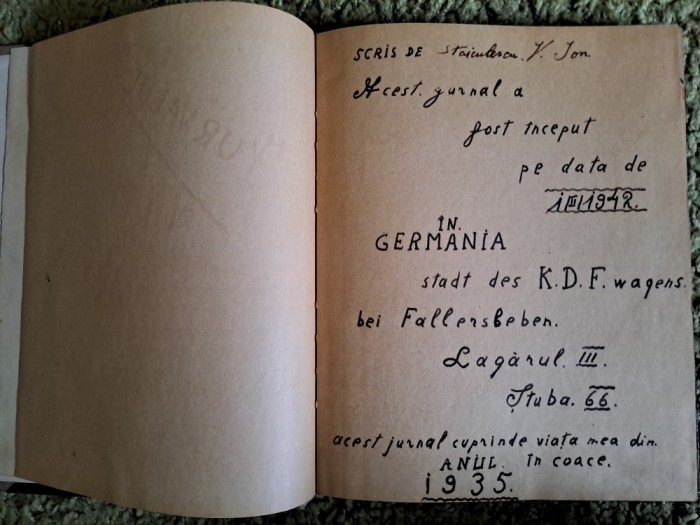 SCRIS DE Stoiculescu. V. Ion.
Acest. jurnal a
fost început
pe data de
1 III 1942.
ÎN.
GERMANIA
stadt des K.D.F. wagens.
bei Fallersleben.
Lagărul. III.
Ștuba. 66.
acest jurnal cuprinde viața mea din.
ANUL. în coace.
1935.